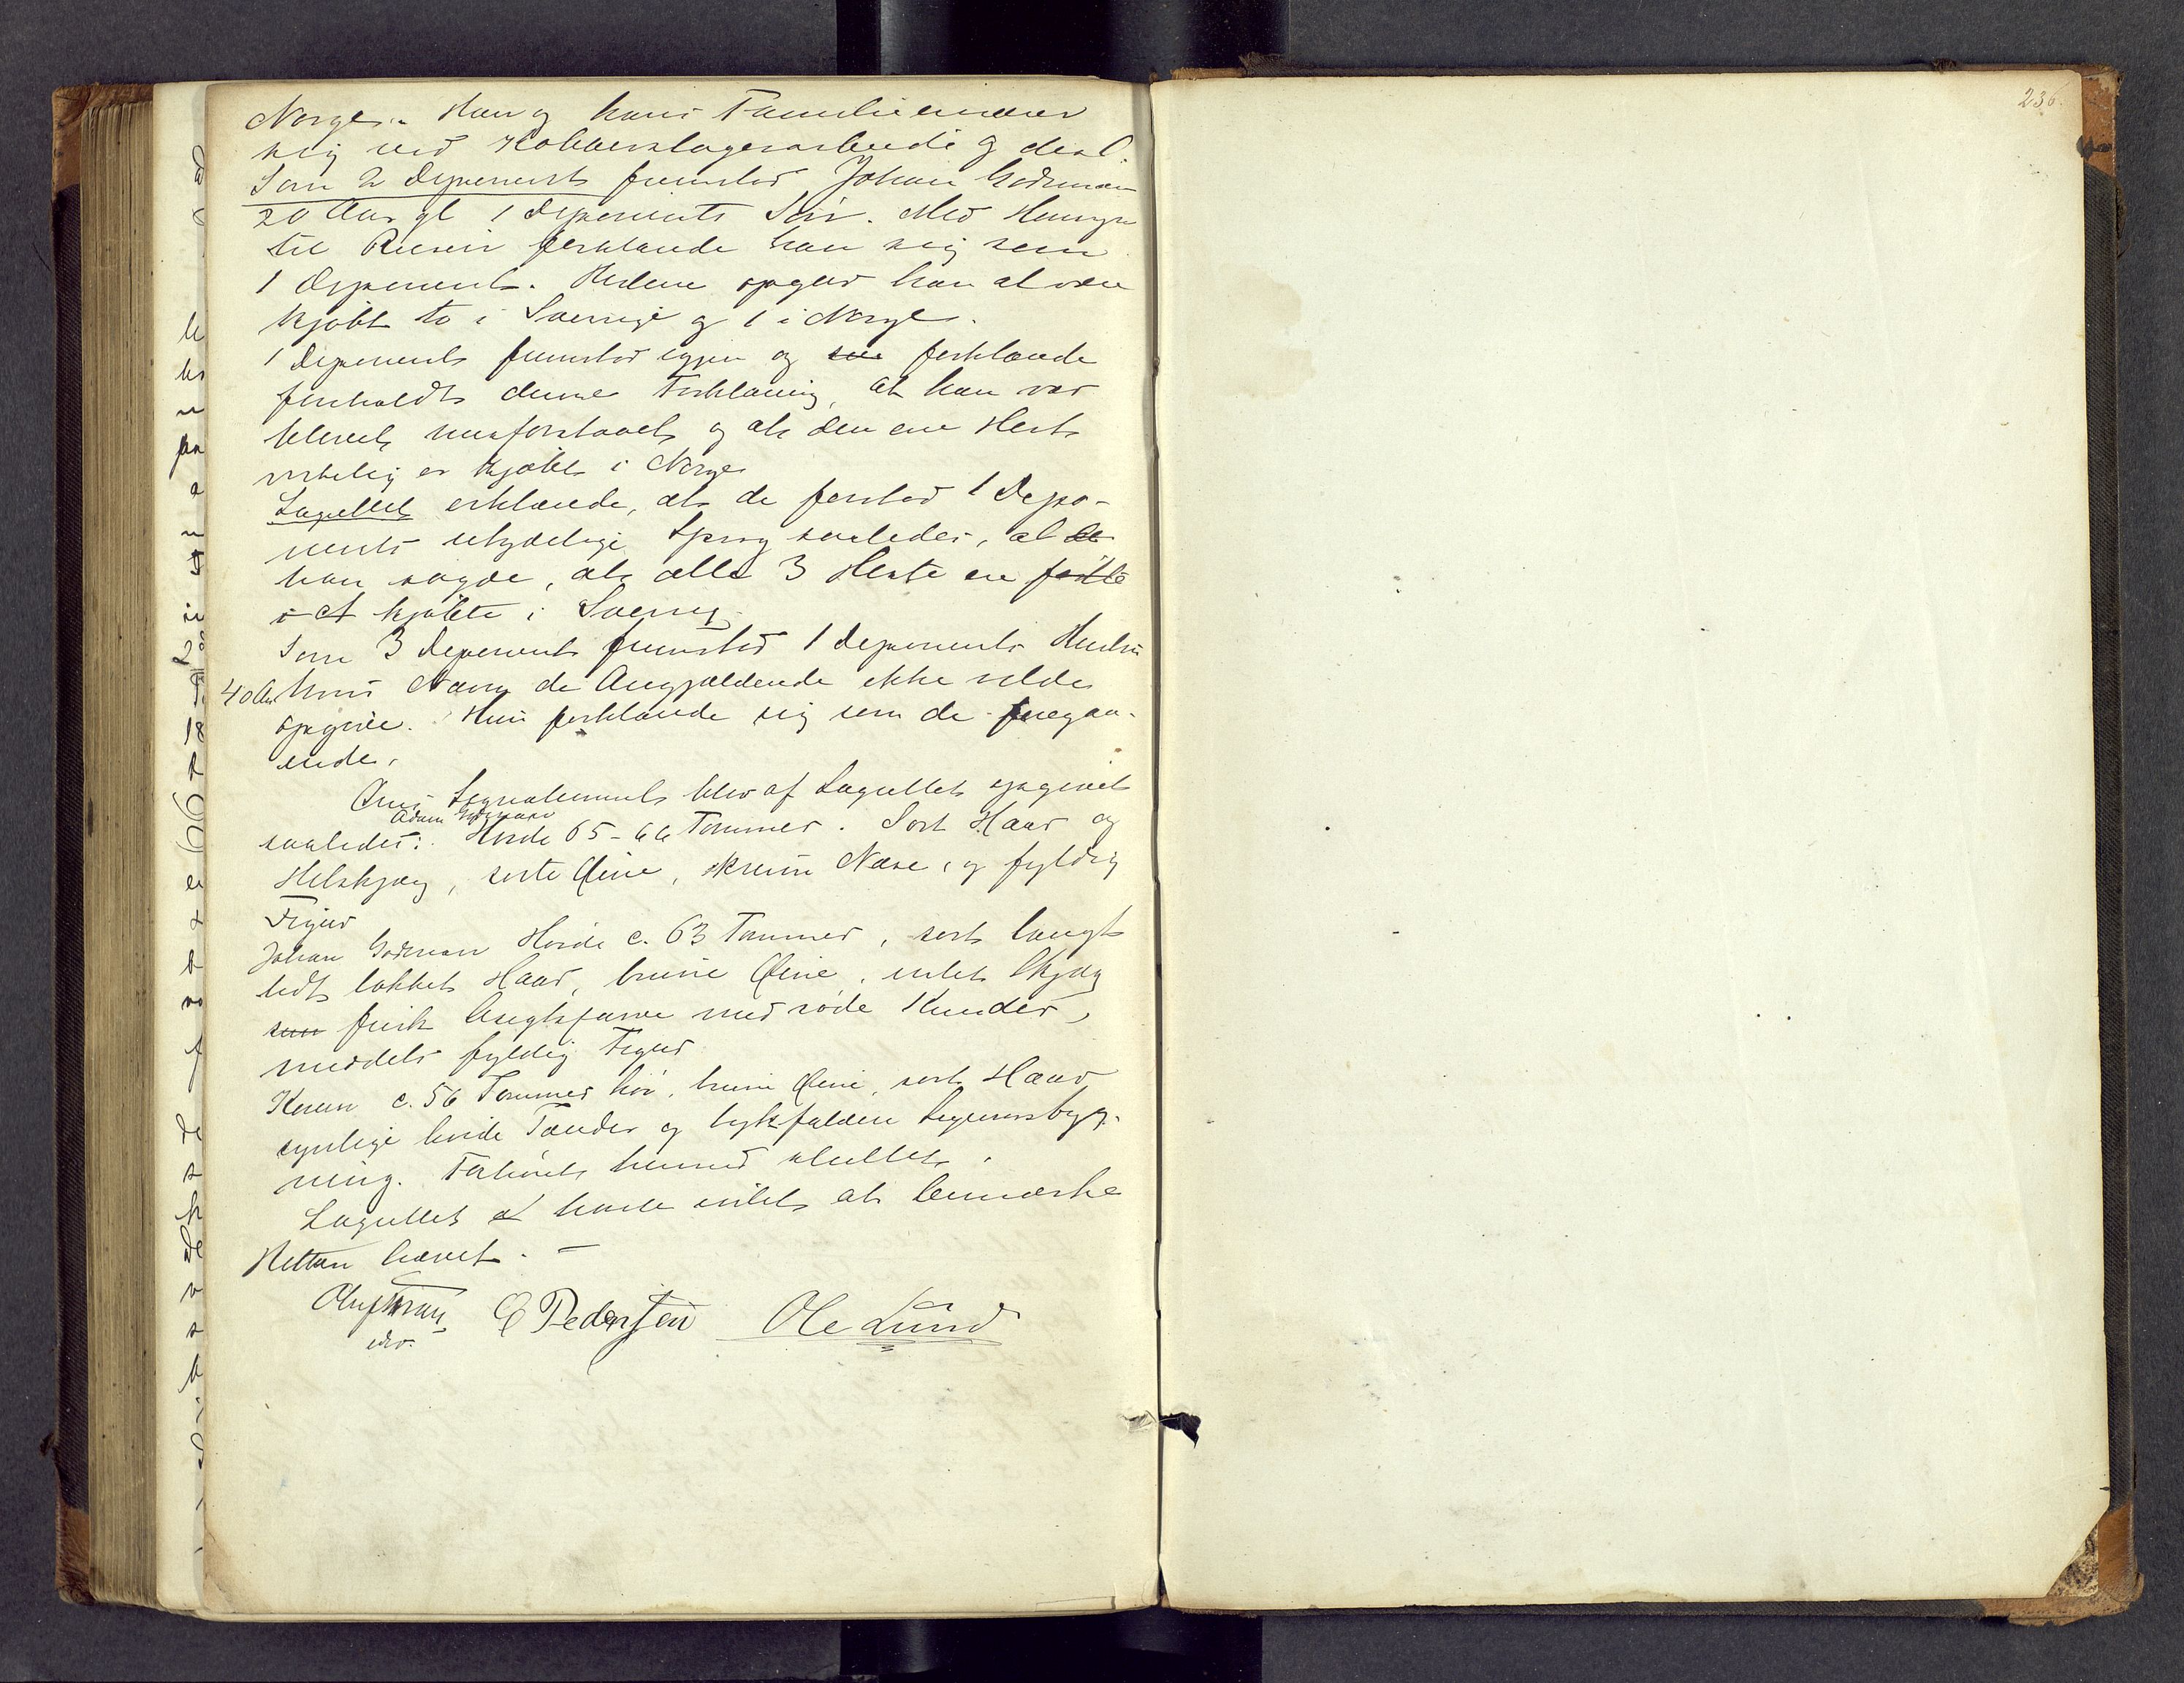 Norge. Han og hans Familie nærer
sig ved Kobberslagerarbeide og desl.
Som 2 Deponent fremstod Johan Godman
20 Aar gl 1 Deponents Søn. Med Hensyn
til Reisen forklarede han sig som
1 Deponent. Hestene opgav han at være
kjøbt to i Sverrige og 1 i Norge.
1 Deponent fremstod igjen og forklarede
foreholdt denne Forklaring, at han var
blevet misforstaaet og at den ene Hest
virkelig er kjøbt i Norge
Lagrettet erklærede, at de forstod 1 Depo-
nents utydelige Sprog saaledes, at de
han sagde, at alle 3 Heste er fødte
i et kjøbte i Sverrig
Som 3 Deponent fremstod 1 Deponents Hustru
40 Aar hvis Navn de Angjældende ikke vilde
opgive. Hun forklarede sig som de foregaa-
ende.
Signalement blev af Lagrettet opgivet
Adam Godman
saaledes: Høide 65-66 Tommer. Sort Haar og
Helskjæg, sorte Øine, krum Næse, og fyldig
Figur
Johan Godman Høide c. 63 Tommer, sort langt
lidt lokket Haar, brune Øine, intet Skjæg
frisk Ansigtsfarve med røde Kinder,
middels fyldig Figur
Konen c. 56 Tommer høi, brune Øine, sort Haar
synlige hvide Tænder og tykfalden Legemsbyg-
ning. Forhøret hermed sluttet.
Lagrettet havde intet at bemærke
Retten hævet. -
E Pedersen Ole Lund
236.